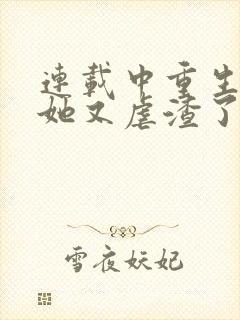 連載中重生
她又虐渣了
雪夜妖妃